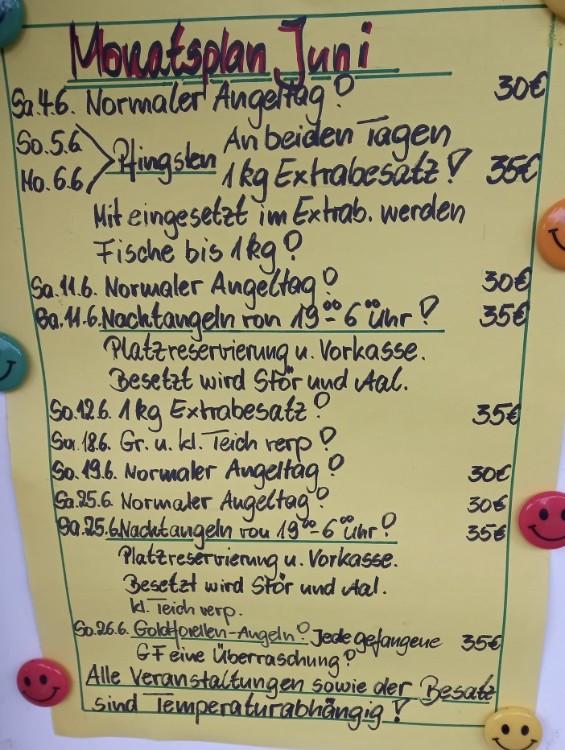 Monatsplan Juni
Sa.4.6. Normaler Angeltag! 30€
So.5.6. An beiden Tagen
Mo.6.6 Pfingsten 1kg Extrabesatz! 35€
Mit eingesetzt im Extrab. werden
Fische bis 1kg!
Sa.11.6. Normaler Angeltag! 30€
Sa.11.6. Nachtangeln von 19⁰⁰-6⁰⁰ Uhr! 35€
Platzreservierung u. Vorkasse.
Besetzt wird Stör und Aal.
So.12.6. 1kg Extrabesatz! 35€
Sa.18.6. Gr. u. kl. Teich verp!
So.19.6. Normaler Angeltag! 30€
Sa.25.6. Normaler Angeltag! 30€
Sa.25.6. Nachtangeln von 19⁰⁰-6⁰⁰ Uhr! 35€
Platzreservierung u. Vorkasse.
Besetzt wird Stör und Aal.
kl. Teich verp.
So.26.6. Goldforellen-Angeln! Jede gefangene 35€
GF eine Überraschung!
Alle Veranstaltungen sowie der Besatz
sind Temperaturabhängig!